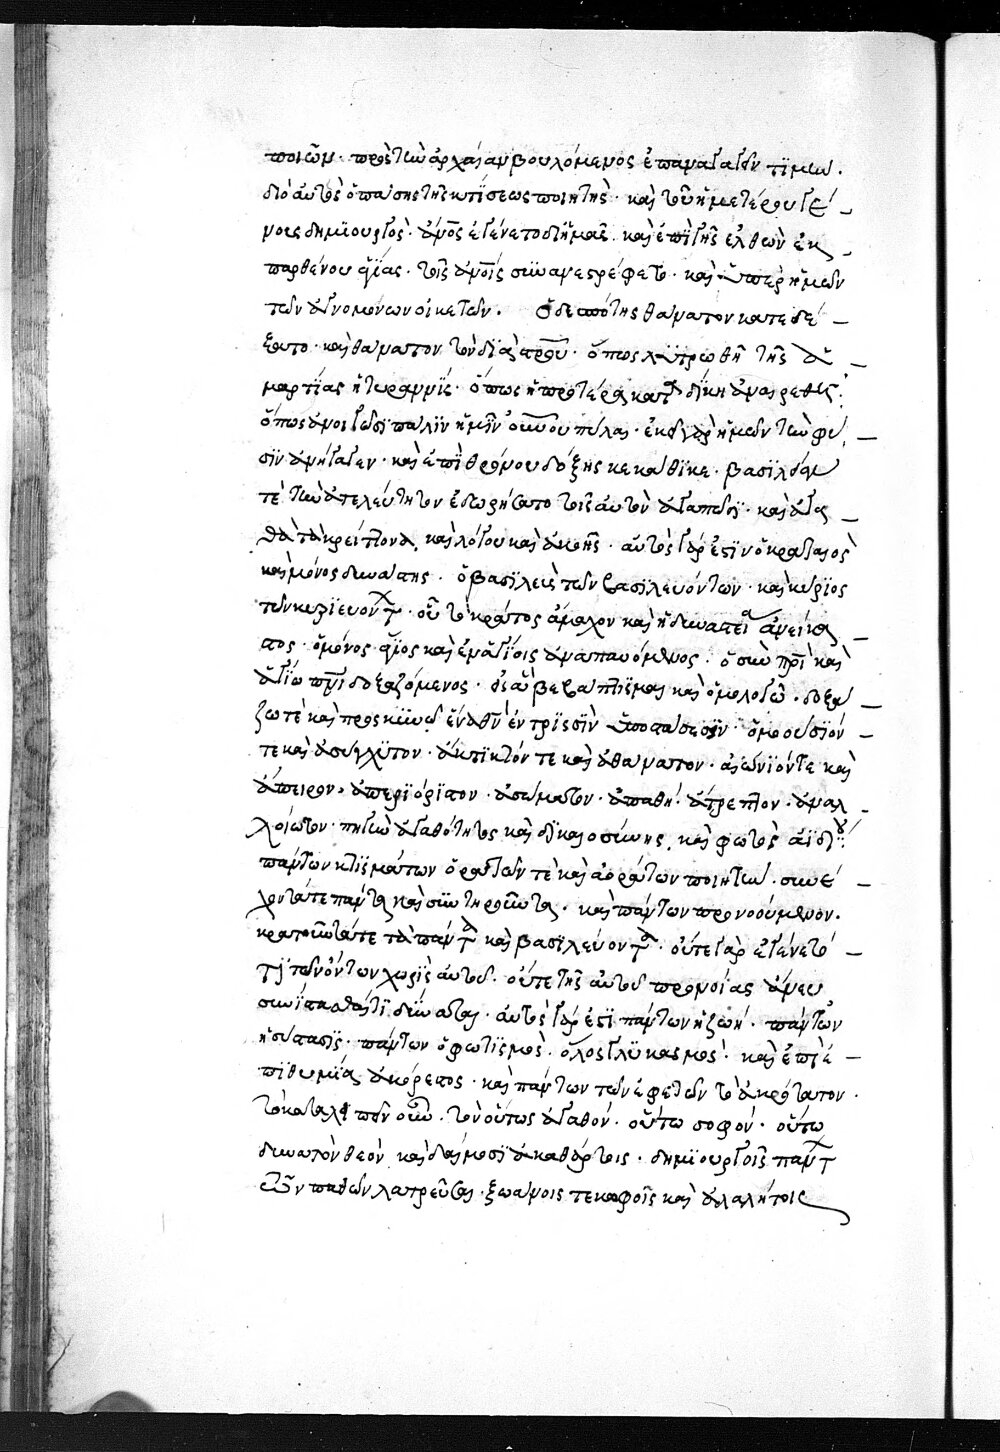 ποιῶν· πρὸς τὴν ἀρχαίαν βουλόμενος ἐπαναγαγεῖν τιμὴν·
διὸ αὐτὸς ὁ πάσης τῆς κτίσεως ποιητὴς· καὶ τοῦ ἡμετέρου γέ-
νους δημιουργὸς· ἄνος ἐγένετο δι' ἡμᾶς· καὶ ἐπὶ γῆς ἐλθὼν ἐκ
παρθένου ἁγίας· τοῖς ἀνοις συνανεστρέφετο· καὶ ὑπὲρ ἡμῶν
τῶν ἀγνομόνων οἰκετῶν· ὁ δεσπότης θάνατον κατεδέ-
ξατο· καὶ θάνατον τὸν διὰ στροῦ· ὅπως λυτρωθῆ τῆς ἁ-
μαρτίας ἡ τυραννίς· ὅπως ἡ προτέρα καταδίκη ἀναιρεθῆ·
ὅπως ἀνοιγῶσι πάλιν ἡμῖν οὐνοῦ πύλαι· ἐκεῖ γὰρ ἡμῶν τὴν φύ-
σιν ἀνήγαγεν· καὶ ἐπὶ θρόνου δόξης κεκάθικε· βασιλείαν
τὲ τὴν ἀτελεύτητον ἐδωρήσατο τοῖς αὐτὸν ἀγαπῶσι· καὶ ἀγα-
θὰ τὰ κρείττονα, καὶ λόγου καὶ ἀκοῆς· αὐτὸς γάρ ἐστιν ὁ κραταιὸς
καὶ μόνος δυνάστης· ὁ βασιλεὺς τῶν βασιλευόντων· καὶ κύριος
τῶν κυριευόντων· οὗ τὸ κράτος ἄμαχον καὶ ἡ δυναστεία ἀνείκα-
στος· ὁ μόνος ἅγιος καὶ ἐν ἁγίοις ἀναπαυόμενος· ὁ σὺν πρὶ καὶ
ἁγίω πνι δοξαζόμενος· εἰς ἃ βεβάπτισμαι καὶ ὁμολογῶ· δοξά-
ζω τὲ καὶ προσκυνῶ ἕνα θν ἐν τρισὶν ὑποστάσεσιν· ὁμοούσιόν
τε καὶ ἀσύγχυτον· ἄκτιστόν τε καὶ ἀθάνατον· αἰώνιόν τε καὶ
ἄπειρον· ἀπεριόριστον· ἀσώματον· ἀπαθῆ· ἄτρεπτον· ἀναλ-
λοίωτον· πηγὴν ἀγαθότητος καὶ δικαιοσύνης, καὶ φωτὸς ἀϊδίου·
πάντων κτισμάτων ὁρατῶν τὲ καὶ ἀοράτων ποιητὴν· συνέ-
χοντά τε πάντα καὶ συντηροῦντα· καὶ πάντων προνοούμενον·
κρατοῦντά τε τὰ πάντα καὶ βασιλεύοντα· οὔτε γὰρ ἐγένετό
τι τῶν ὄντων χωρὶς αὐτοῦ· οὔτε τῆς αὐτοῦ προνοίας ἄνευ
συνίστασθαί τι δύναται· αὐτὸς γάρ ἐστι πάντων ἡ ζωή· πάντων
ἡ σύστασις· πάντων ὁ φωτισμὸς· ὅλος γλυκασμὸς· καὶ ἐ
πιθυμία ἀκόρεστος· καὶ πάντων τῶν ἐφετῶν τὸ ἀκρότατον·
τὸ καταλιπεῖν οὖν τὸν οὕτως ἀγαθόν· οὕτω σοφόν· οὕτω
δυνατὸν θεὸν καὶ δαίμοσι ἀκαθάρτοις· δημιουργοῖς πάντων
τῶν παθῶν λατρεῦσαι· ξοάνοις τε κωφοῖς καὶ ἀλαλήτοις